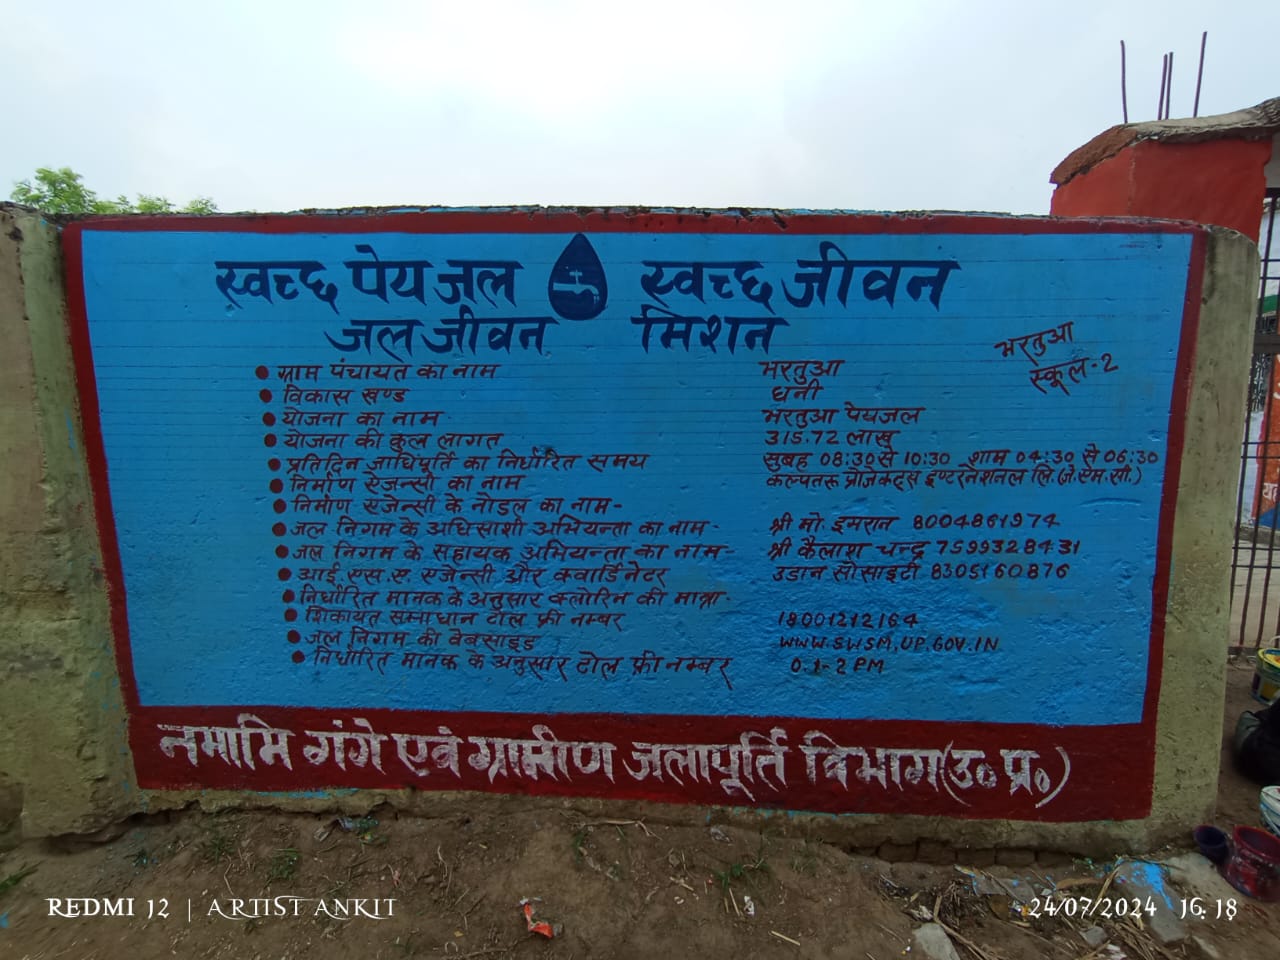 स्वच्छ पेयजल स्वच्छ जीवन
जल जीवन मिशन
भरतुआ
स्कूल-2
ग्राम पंचायत का नाम भरतुआ
विकास खण्ड धनी
योजना का नाम भरतुआ पेयजल
योजना की कुल लागत 315.72 लाख
प्रतिदिन जाधिपूर्ति का निर्धारित समय सुबह 08:30 से 10:30 शाम 04:30 से 06:30
निर्माण एजेन्सी का नाम कल्पतरू प्रोजेक्ट्स इण्टरनैशनल लि. (जे.एम.सी.)
निर्माण एजेन्सी के नोडल का नाम-
जल निगम के अधिसाशी अभियन्ता का नाम- श्री मो. इमरान 8004861974
जल निगम के सहायक अभियन्ता का नाम- श्री कैलाश चन्द्र 7599328431
आई.एस.ए. एजेन्सी और क्वार्डिनेटर उडान सोसाइटी 8305160876
निर्धारित मानक के अनुसार क्लोरिन की मात्रा-
शिकायत समाधान टोल फ्री नम्बर 18001212164
जल निगम की वेबसाइड WWW.SWSM,UP.GOV.IN
निर्धारित मानक के अनुसार टोल फ्री नम्बर 0.1-2 PM
नमामि गंगे एवं ग्रामीण जलापूर्ति विभाग (उ० प्र०)
REDMI 12 | ARTIST ANKIT
24/07/2024 16:18